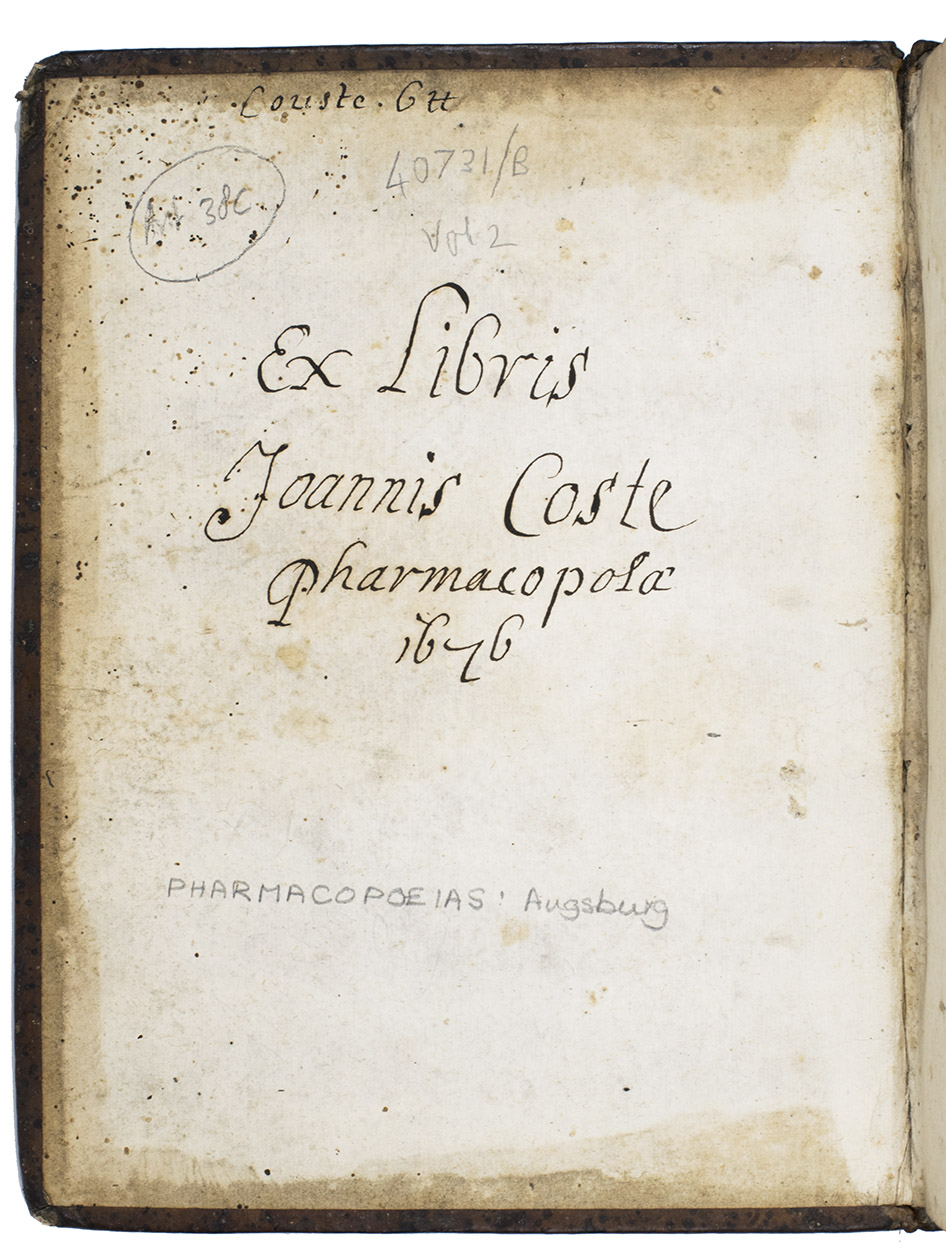 Couste . 6 tt
Art 38C
40731/B
Vol 2
Ex Libris
Joannis Coste
Pharmacopolæ
1676
PHARMACOPOEIAS: Augsburg